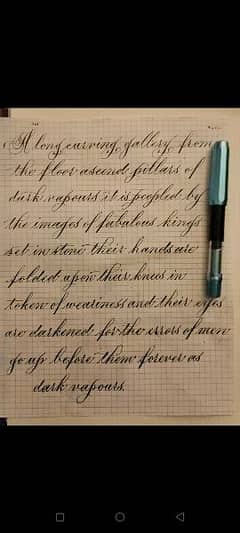 A long curving gallery from
the floor ascend pillars of
dark vapours it is peopled by
the images of fabulous kings
set in stone their hands are
folded upon their knees in
token of weariness and their eyes
are darkened for the errors of men
go up before them forever as
dark vapours.